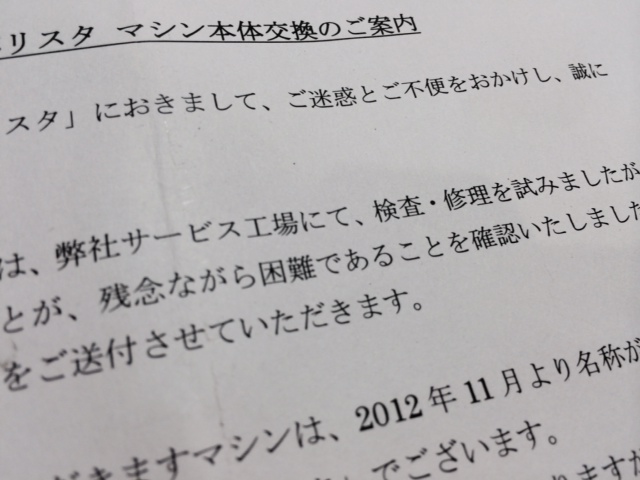 リスタ マシン本体交換のご案内
スタ」におきまして、ご迷惑とご不便をおかけし、誠に
は、弊社サービス工場にて、検査・修理を試みましたが
とが、残念ながら困難であることを確認いたしました
をご送付させていただきます。
だきますマシンは、2012年11月より名称が
でございます。
りますが